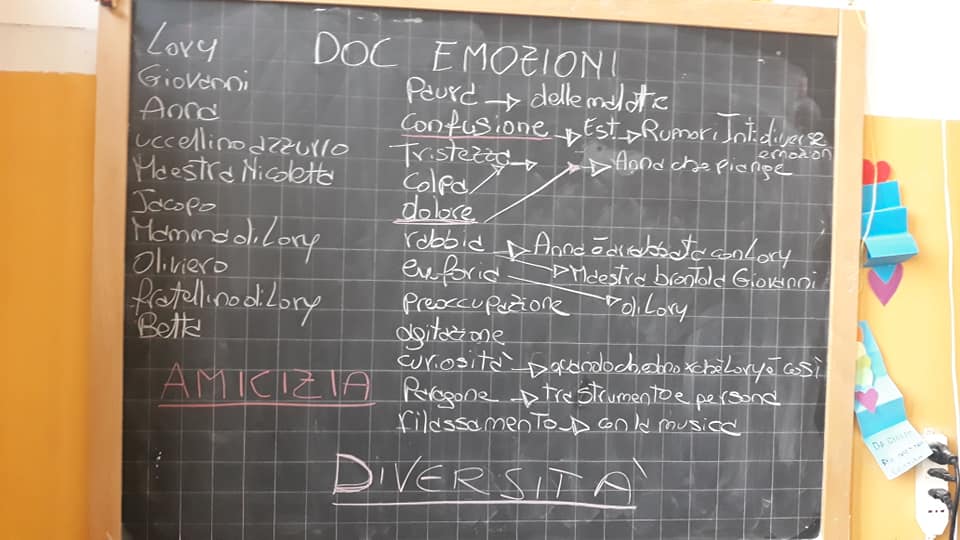 DOC EMOZIONI
Lory
Giovanni
Anna
uccellino azzurro
Maestra Nicoletta
Jacopo
Mamma di Lory
Oliviero
fratellino di Lory
Betta
AMICIZIA
Paura → delle malattie
confusione → Est → Rumori Int: diverse
emozioni
Tristezza →
→ Anna che piange
Colpa
dolore
rabbia → Anna è arrabbiata con Lory
euforia → Maestra brontola Giovanni
Preoccupazione → di Lory
agitazione
curiosità → quando chiedono xché Lory è così
Paragone → tra strumento e persona
rilassamento → con la musica
DIVERSITÀ